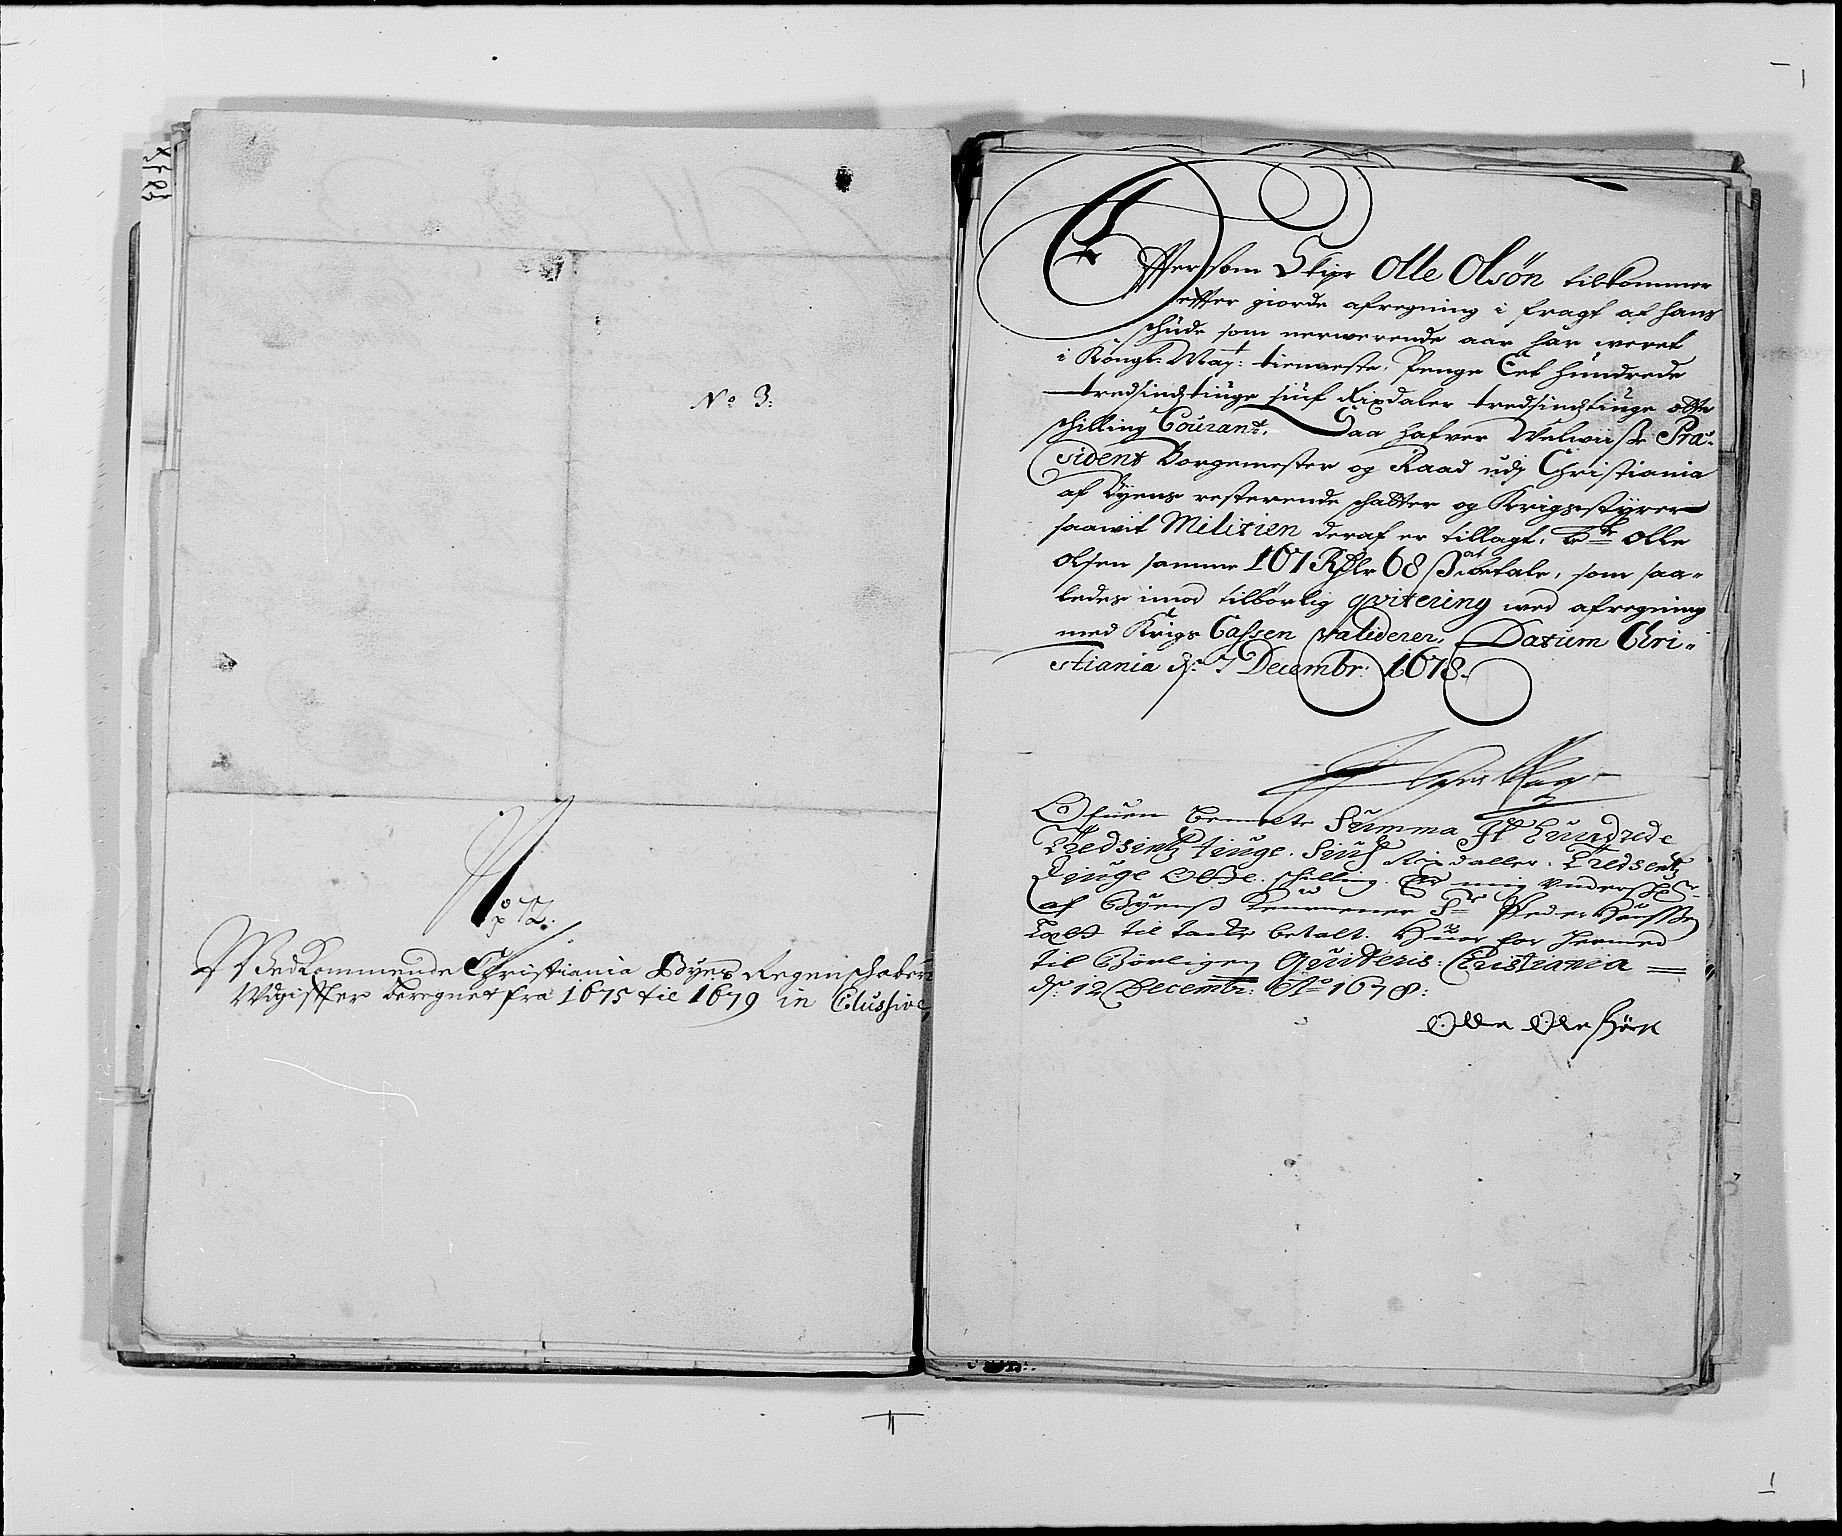 No 3:
No 2:
Wedkommende Christiania Byes Regenschaber
Udgiffter beregnet fra 1675 til 1679 in Clussive
Effter som Skipr Olle Olsön tilkommer
effter giorde afregning i fragt af hans
schude som nerwerende aar har weret
i Kongl: May: tienneste, Penge Eet hundrede
tredsindstiuge siuf Rixdaler tredsindstiuge otte
schilling Courant. Saa hafver Welwiise Præ-
sident Borgemester og Raad udj Christiania
af Byens resterende schatter og Krigsstyrer
saawit Militien deraf er tillagt, Olle
Olsen samme 167 Rdlr 68 ß at betale, som saa-
ledes imod tilbørlig qvitering wed afregning
med Krigs Cassen validerer, Datum Chri-
stiania dn 7 Decembr: 1678.
Ofuen bemelte Summa Et Hundrede
Tredsintz tiuge Siuf Rixdaller Tredsentz
Tiuge Otte schilling mig
af Byenß Kemener Sr Peder Hanssen
til tacke betalt. Huor for hermed
til Börligen Quiteris: Christiania
dn 12 Decembr: Ao 1678:
Olle Olssön